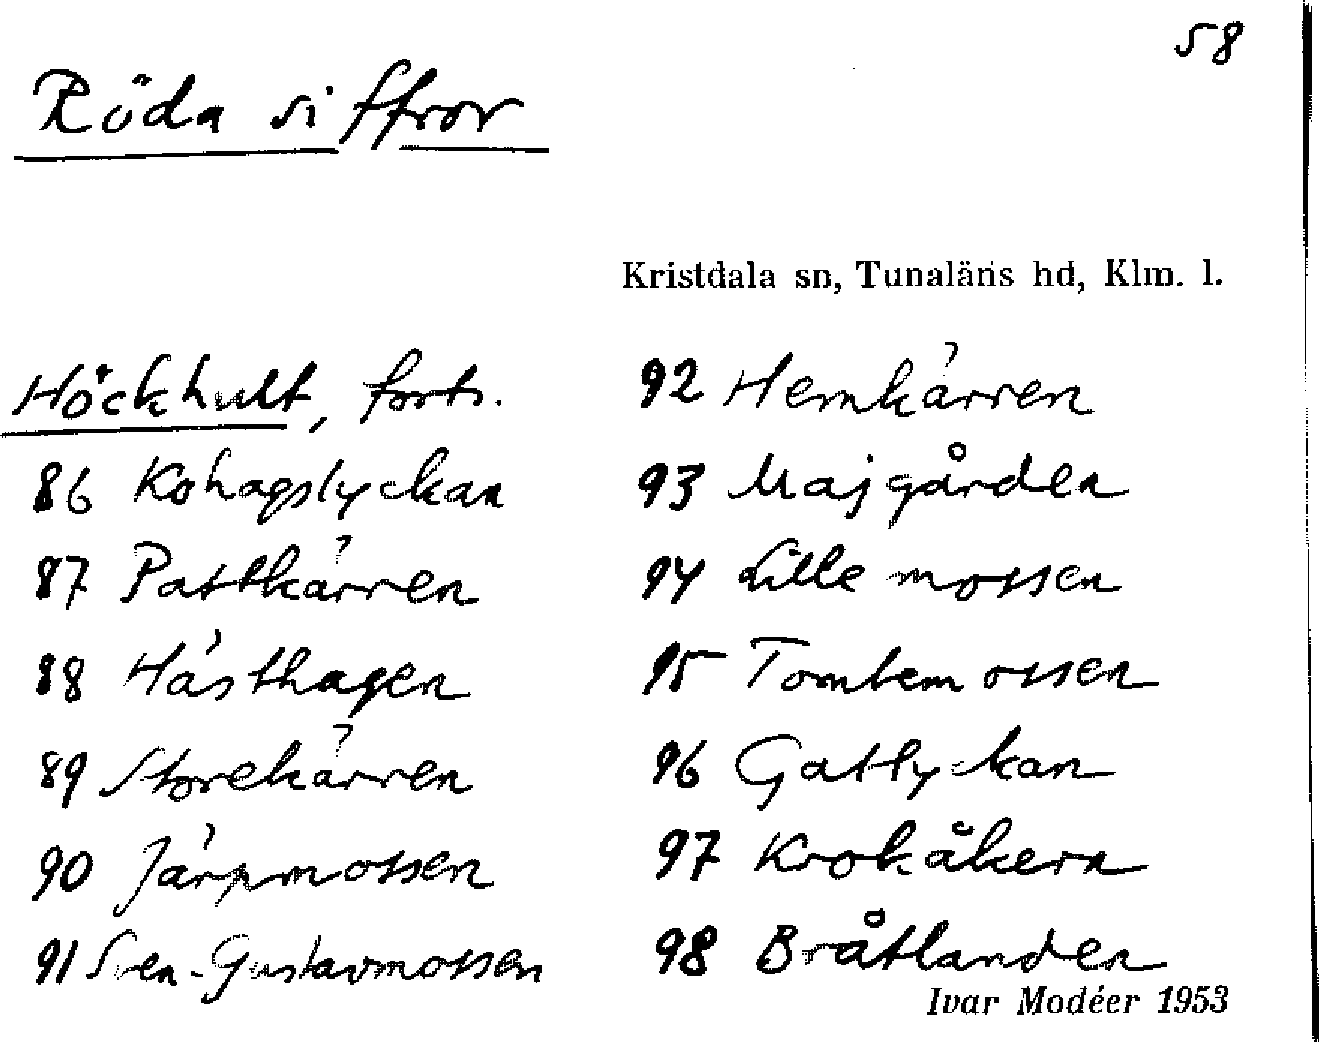 58
Röda siffror
Kristdala sn, Tunaläns hd, Klm. l.
Höckhult, forts.
86 Kohagslyckan
87 Pottkärren
88 Hästhagen
89 Storekärren
90 Järpmossen
91 Sven-Gustavmossen
92 Hemkärren
93 Majgården
94 Lille mossen
95 Tomtemossen
96 Gatlyckan
97 Krokåkern
98 Bråtlanden
Ivar Modéer 1953